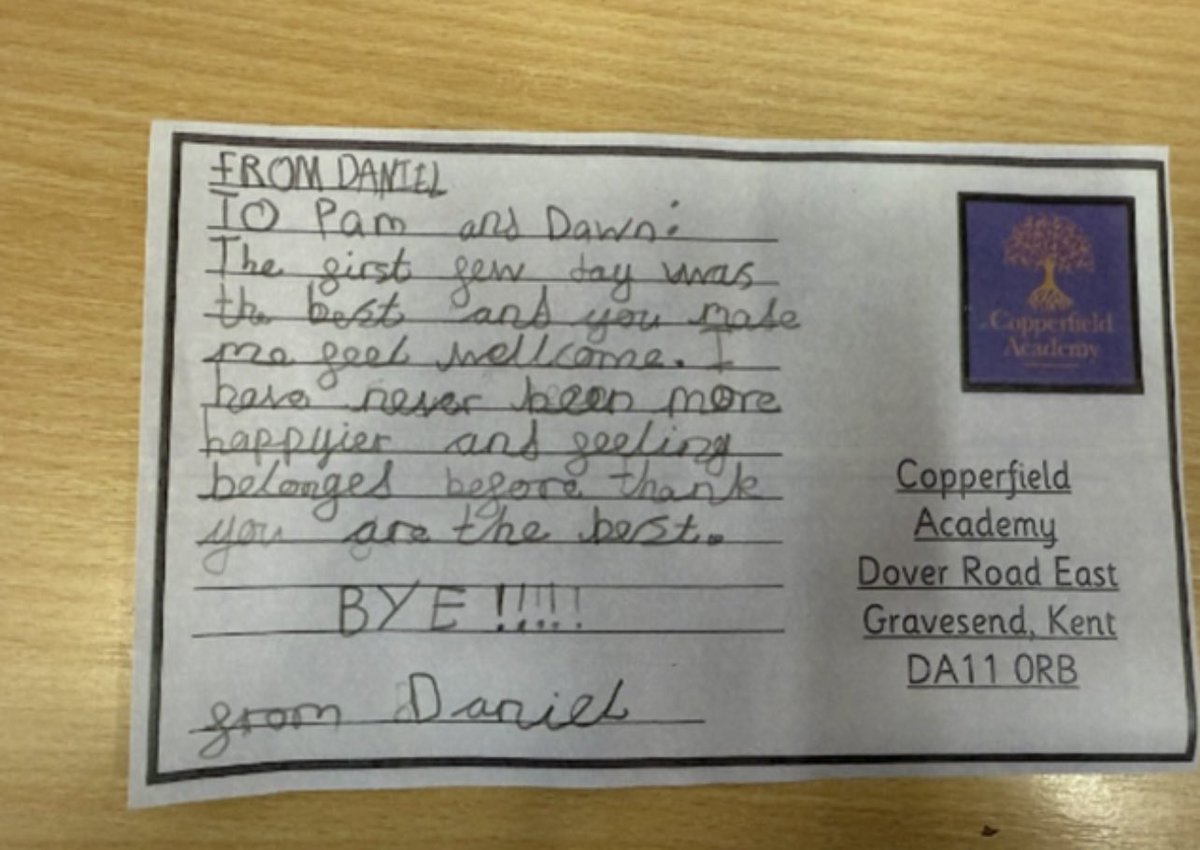 FROM DANIEL
TO Pam and Dawn:
The first few day was
the best and you made
me feel wellcome. I
have never been more
happyier and feeling
belonged before thank
you are the best.
BYE !!!!!!
from Daniel
Copperfield
Academy
Copperfield
Academy
Dover Road East
Gravesend, Kent
DA11 0RB